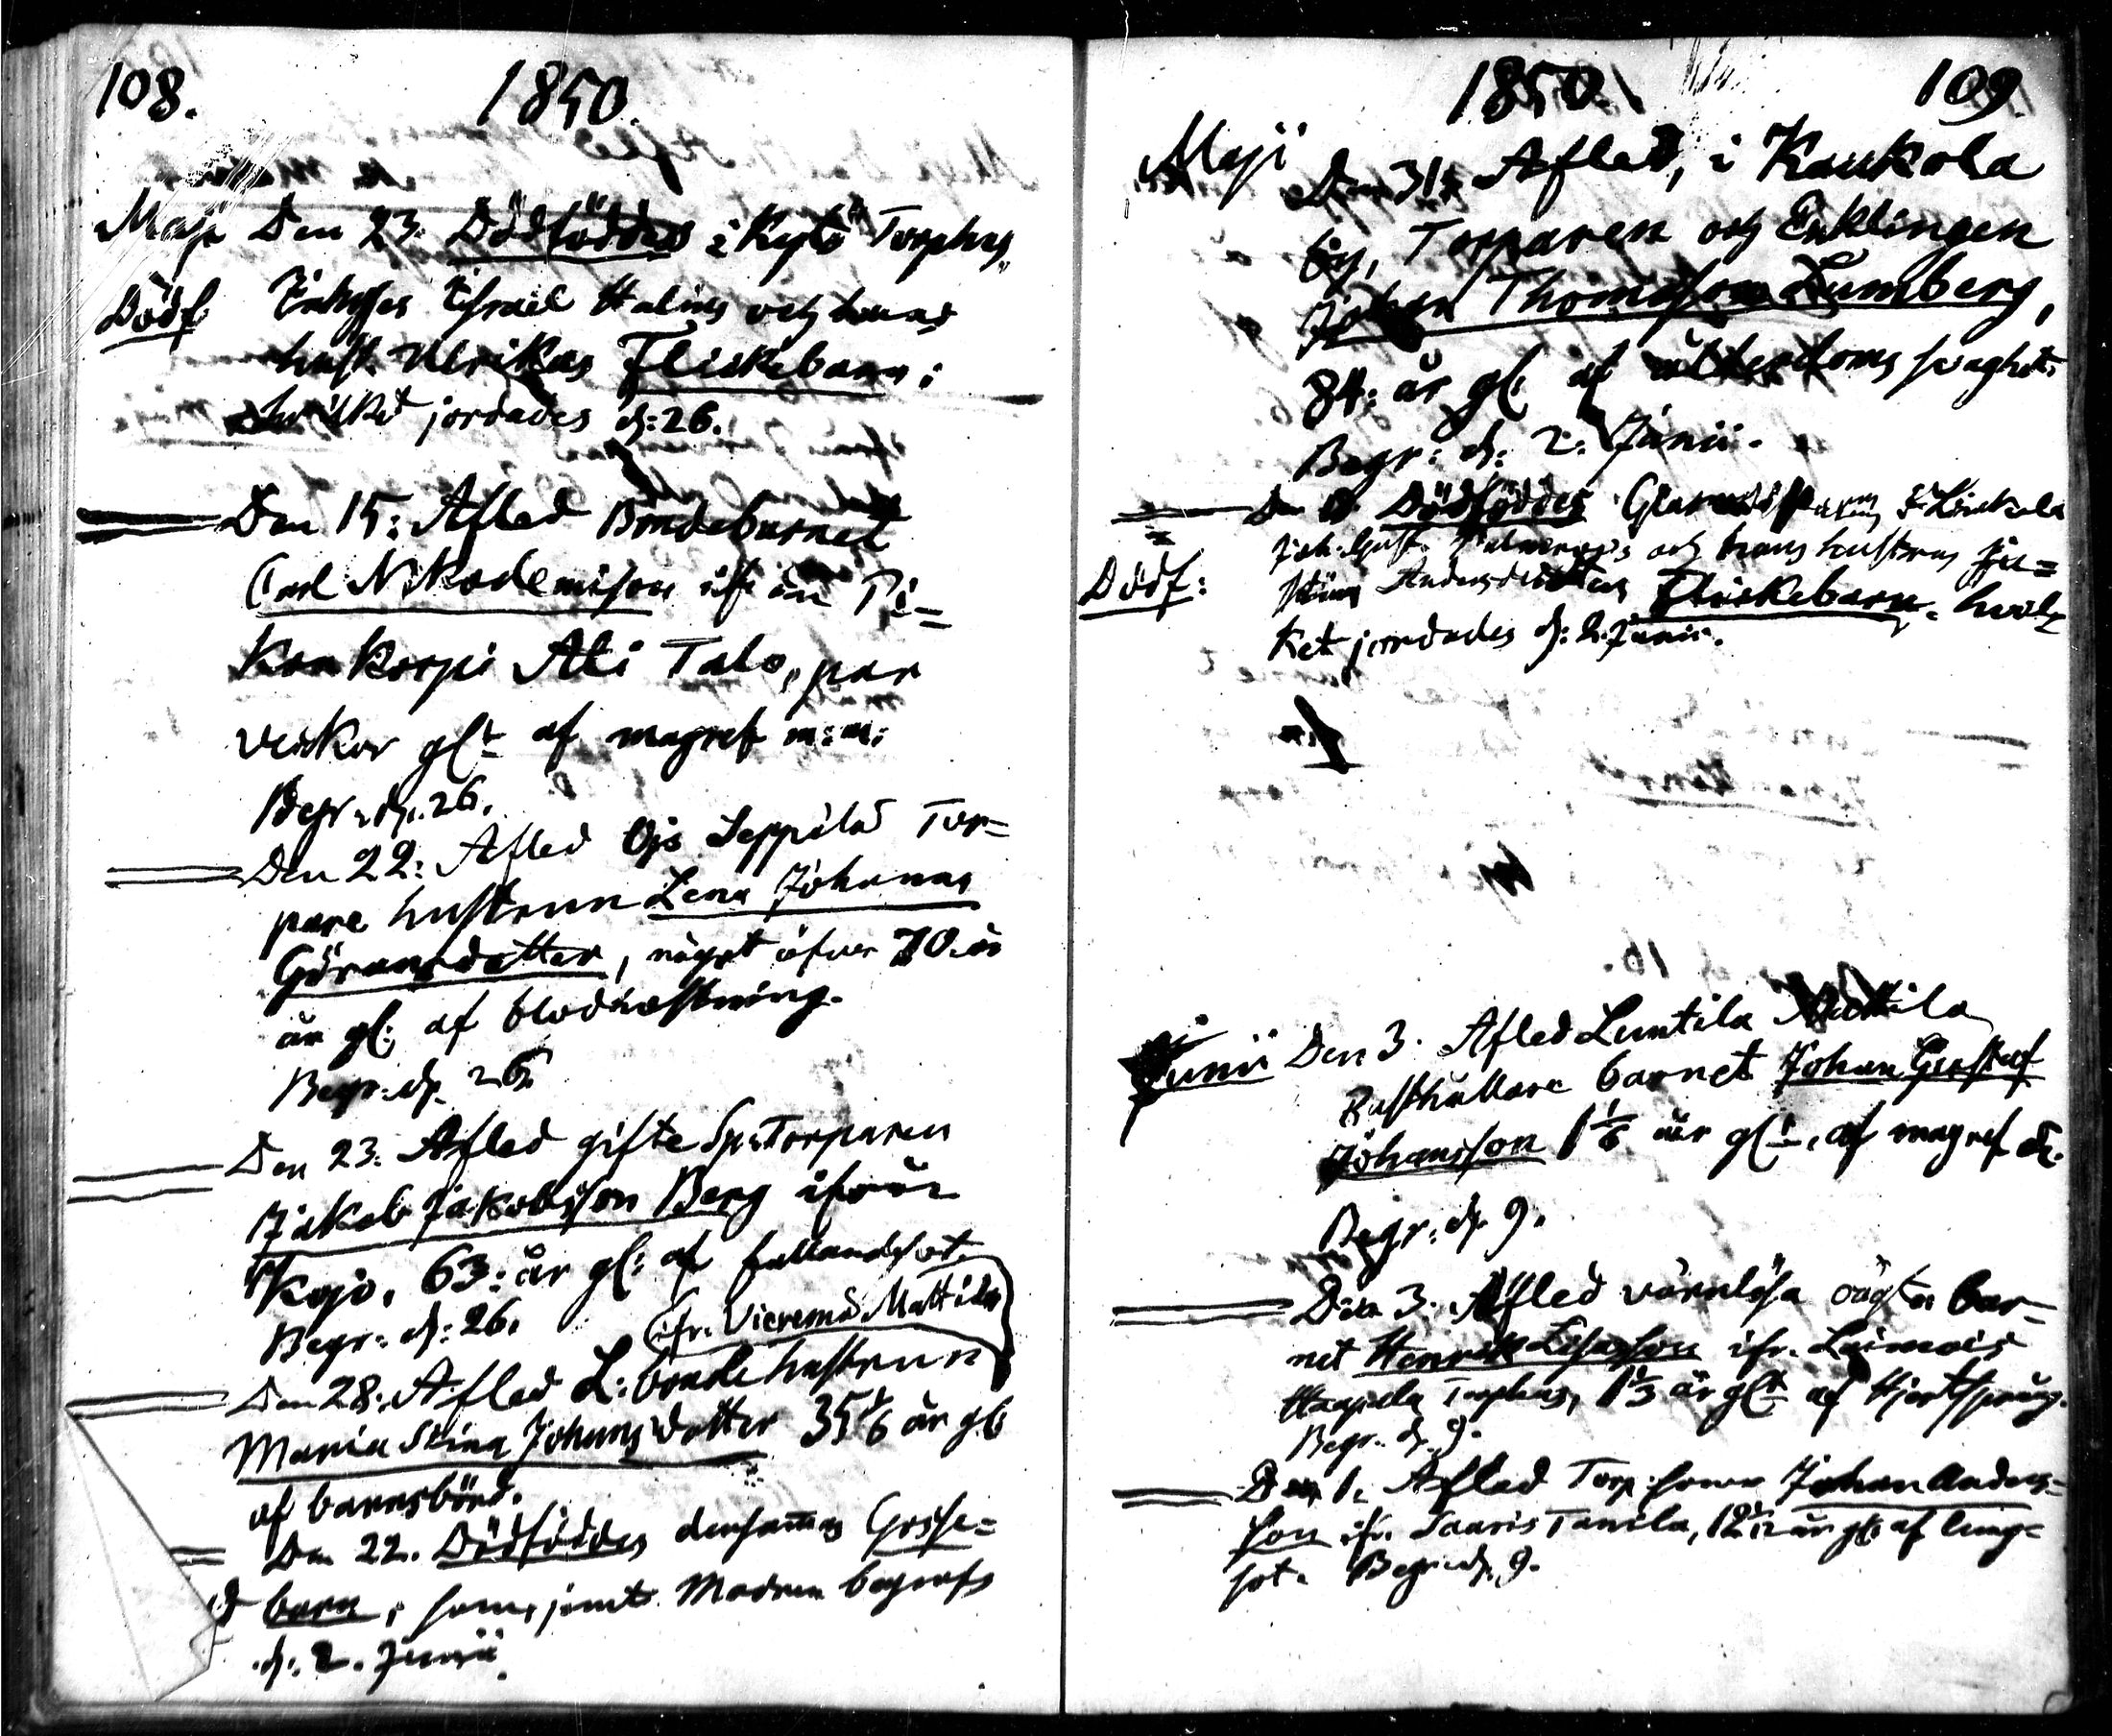 108.
1850.
Maji Den 23. Dödföddes i Kytö Torphus,
Dödf. Inhyses Israel Malins och hans
hust. Ulrikas Flickebarn;
hvilket jordades d: 26.
Den 15: Afled Bondebarnet
Carl Nikodemison ifrån Pi=
Konkorpi Ali Talo, par
veckor glt af magref m:m:
Begr. d. 26.
Den 22: Afled Ojs Seppälä Tor=
pare hustrun Lena Johanas
Göransdotter, något öfver 70 år
år gl: af blodhostning.
Begr. d. 26.
Den 23: Afled gifte Torparen
Jakob Jakobsson Berg ifrån
Kojo, 63: år gl: af fallandesot.
Begr: d: 26.
ifr. Vieremä Mattila
Den 28: Afled L: bonde hustrun
Maria Stina Johansdotter 35 1/6 år gl
af barnsbörd.
Den 22. Dödföddes densammas Gosse=
barn, som, jemt Modren begrofs
d: 2. Junii.
1850.
109.
Maji Den 31: Afled, i Kaukola
by, Torparen och Enklingen
Johan Thomasson Lumberg,
84: år gl: af ålderdoms svaghet.
Begr: d: 2: Junii.
Den Dödföddes i Kaukola
Joh: Gust. och hans hustrus Ju=
Dödf: stina Andersdotters Flickebarn, hvil=
ket jordades d: 2. Junii.
Junii Den 3. Afled Luntila Mattila
Rusthållare barnet Johan Gustaf
Johansson 1 1/6 år glt, af magref &.
Begr: d. 9.
Den 3. Afled värnlösa oägta bar=
net Henrik Lisasson ifr. Laimois
Haapala Torphus, 1 1/3 år glt af Hjertsprång.
Begr. d. 9.
Den 1. Afled Torp. sonen Johan Anders=
son ifr. Saaris Tanila, år gl: af lung=
sot. Begr. d. 9.